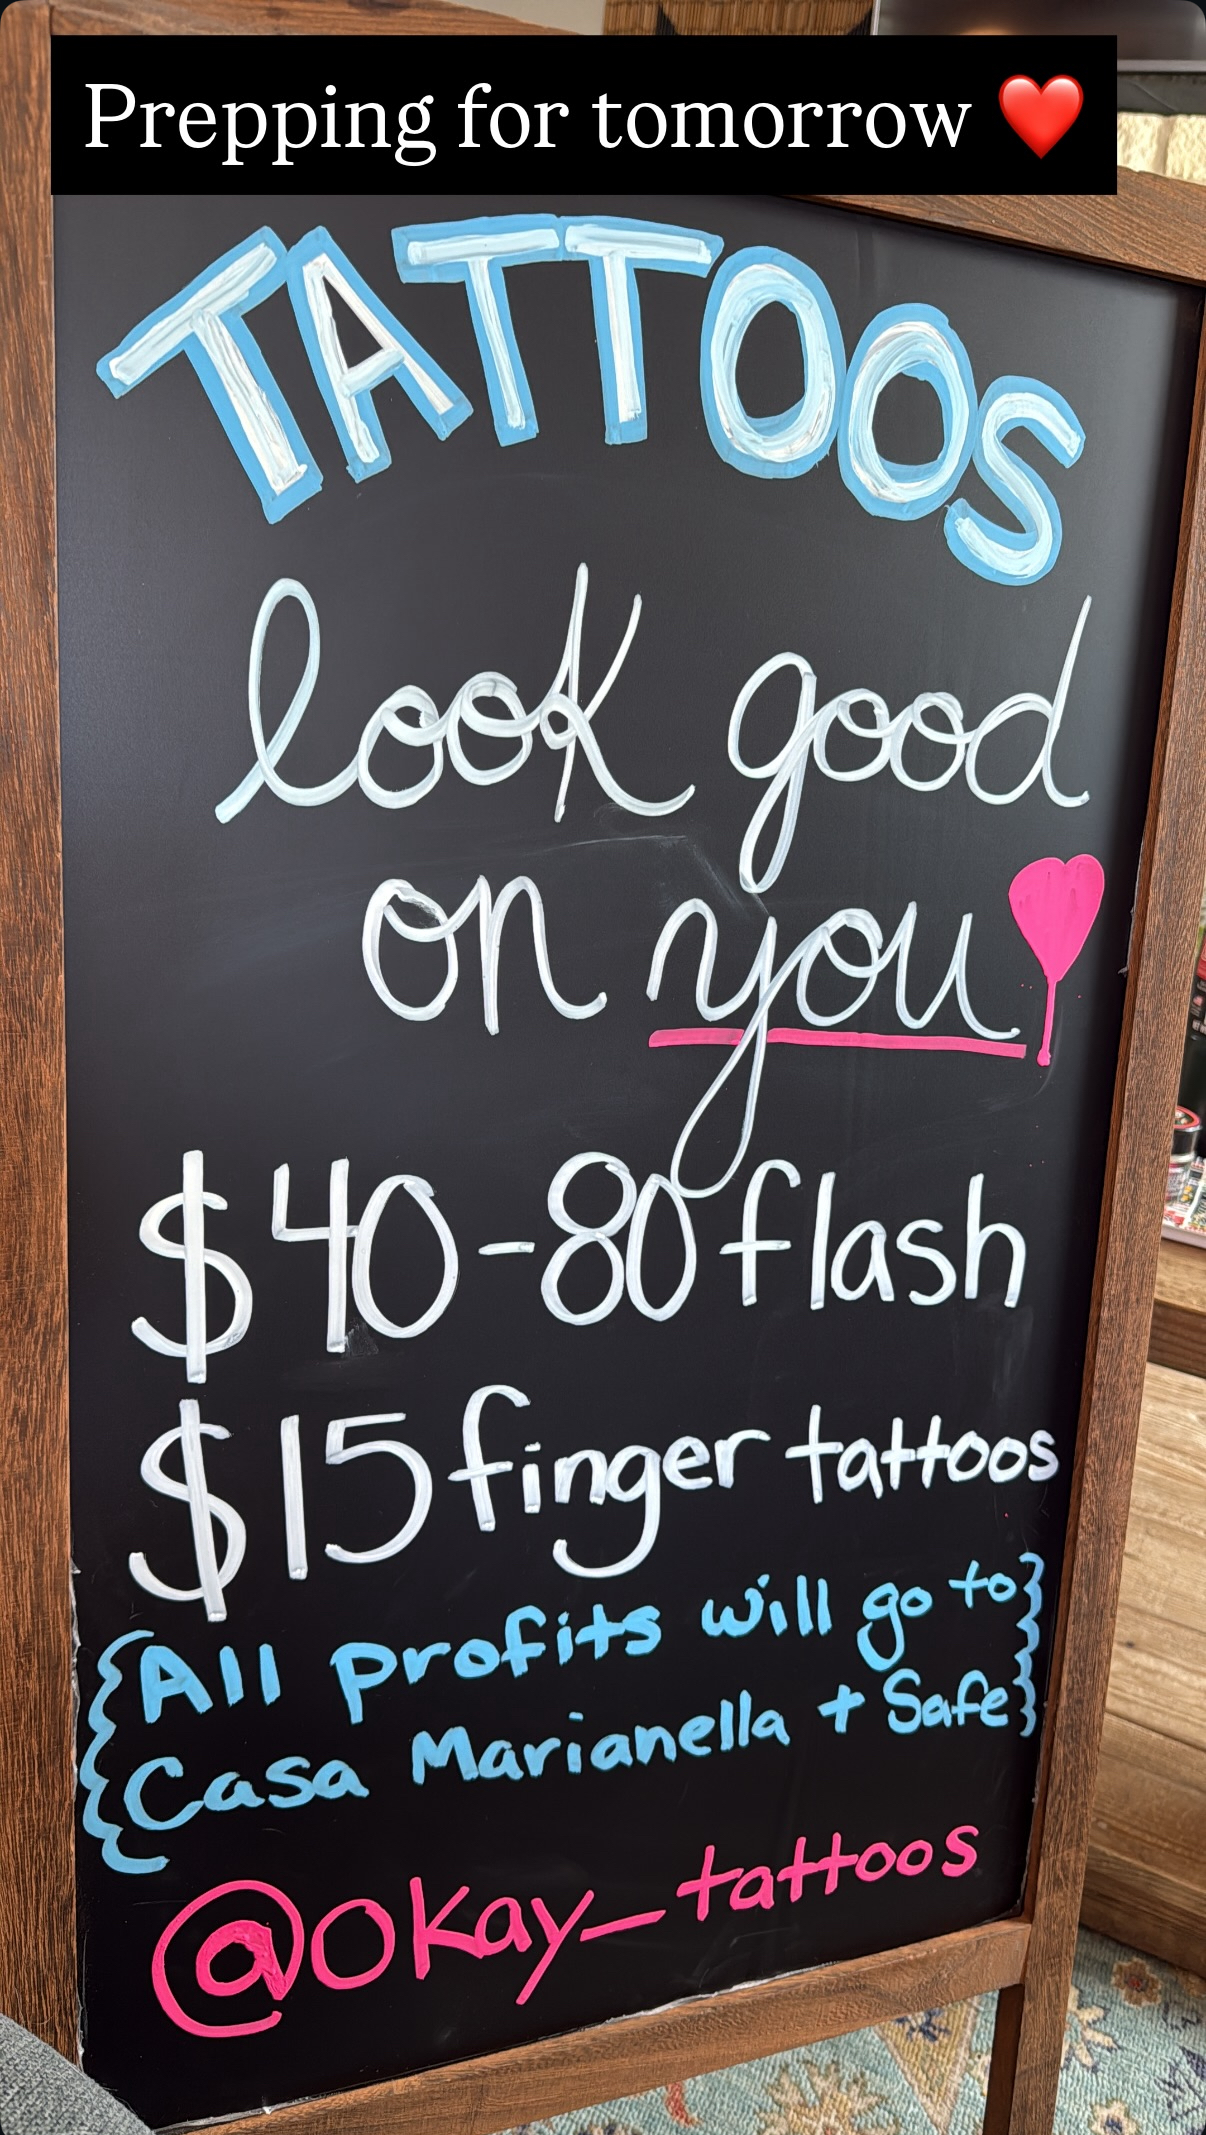 Prepping for tomorrow ❤️
TATTOOS
look good
on you!
$40-80 flash
$15 finger tattoos
{All profits will go to
Casa Marianella + Safe}
@okay_tattoos